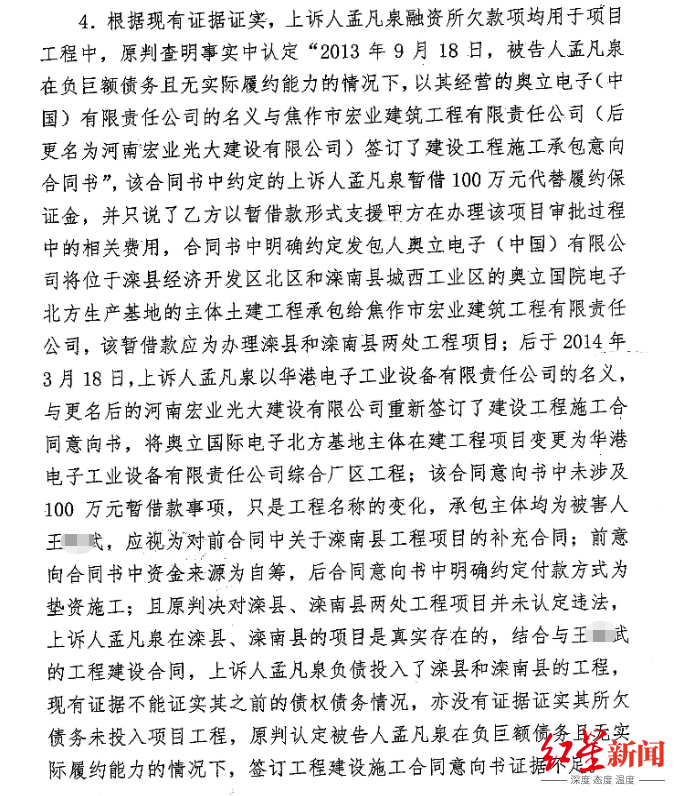 4．根据现有证据证实，上诉人孟凡泉融资所欠款项均用于项目
工程中，原判查明事实中认定“2013 年 9 月 18 日，被告人孟凡泉
在负巨额债务且无实际履约能力的情况下，以其经营的奥立电子（中
国）有限责任公司的名义与焦作市宏业建筑工程有限责任公司（后
更名为河南宏业光大建设有限公司）签订了建设工程施工承包意向
合同书”，该合同书中约定的上诉人孟凡泉暂借 100 万元代替履约保
证金，并只说了乙方以暂借款形式支援甲方在办理该项目审批过程
中的相关费用，合同书中明确约定发包人奥立电子（中国）有限公
司将位于滦县经济开发区北区和滦南县城西工业区的奥立国院电子
北方生产基地的主体土建工程承包给焦作市宏业建筑工程有限责任
公司，该暂借款应为办理滦县和滦南县两处工程项目；后于 2014 年
3 月 18 日，上诉人孟凡泉以华港电子工业设备有限责任公司的名义，
与更名后的河南宏业光大建设有限公司重新签订了建设工程施工合
同意向书，将奥立国际电子北方基地主体在建工程项目变更为华港
电子工业设备有限责任公司综合厂区工程；该合同意向书中未涉及
100 万元暂借款事项，只是工程名称的变化，承包主体均为被害人
王武，应视为对前合同中关于滦南县工程项目的补充合同；前意
向合同书中资金来源为自筹，后合同意向书中明确约定付款方式为
垫资施工；且原判决对滦县、滦南县两处工程项目并未认定违法，
上诉人孟凡泉在滦县、滦南县的项目是真实存在的，结合与王武
的工程建设合同，上诉人孟凡泉负债投入了滦县和滦南县的工程，
现有证据不能证实其之前的债权债务情况，亦没有证据证实其所欠
债务未投入项目工程，原判认定被告人孟凡泉在负巨额债务且无实
际履约能力的情况下，签订工程建设施工合同意向书证据不足。
红星新闻
深度 态度 温度